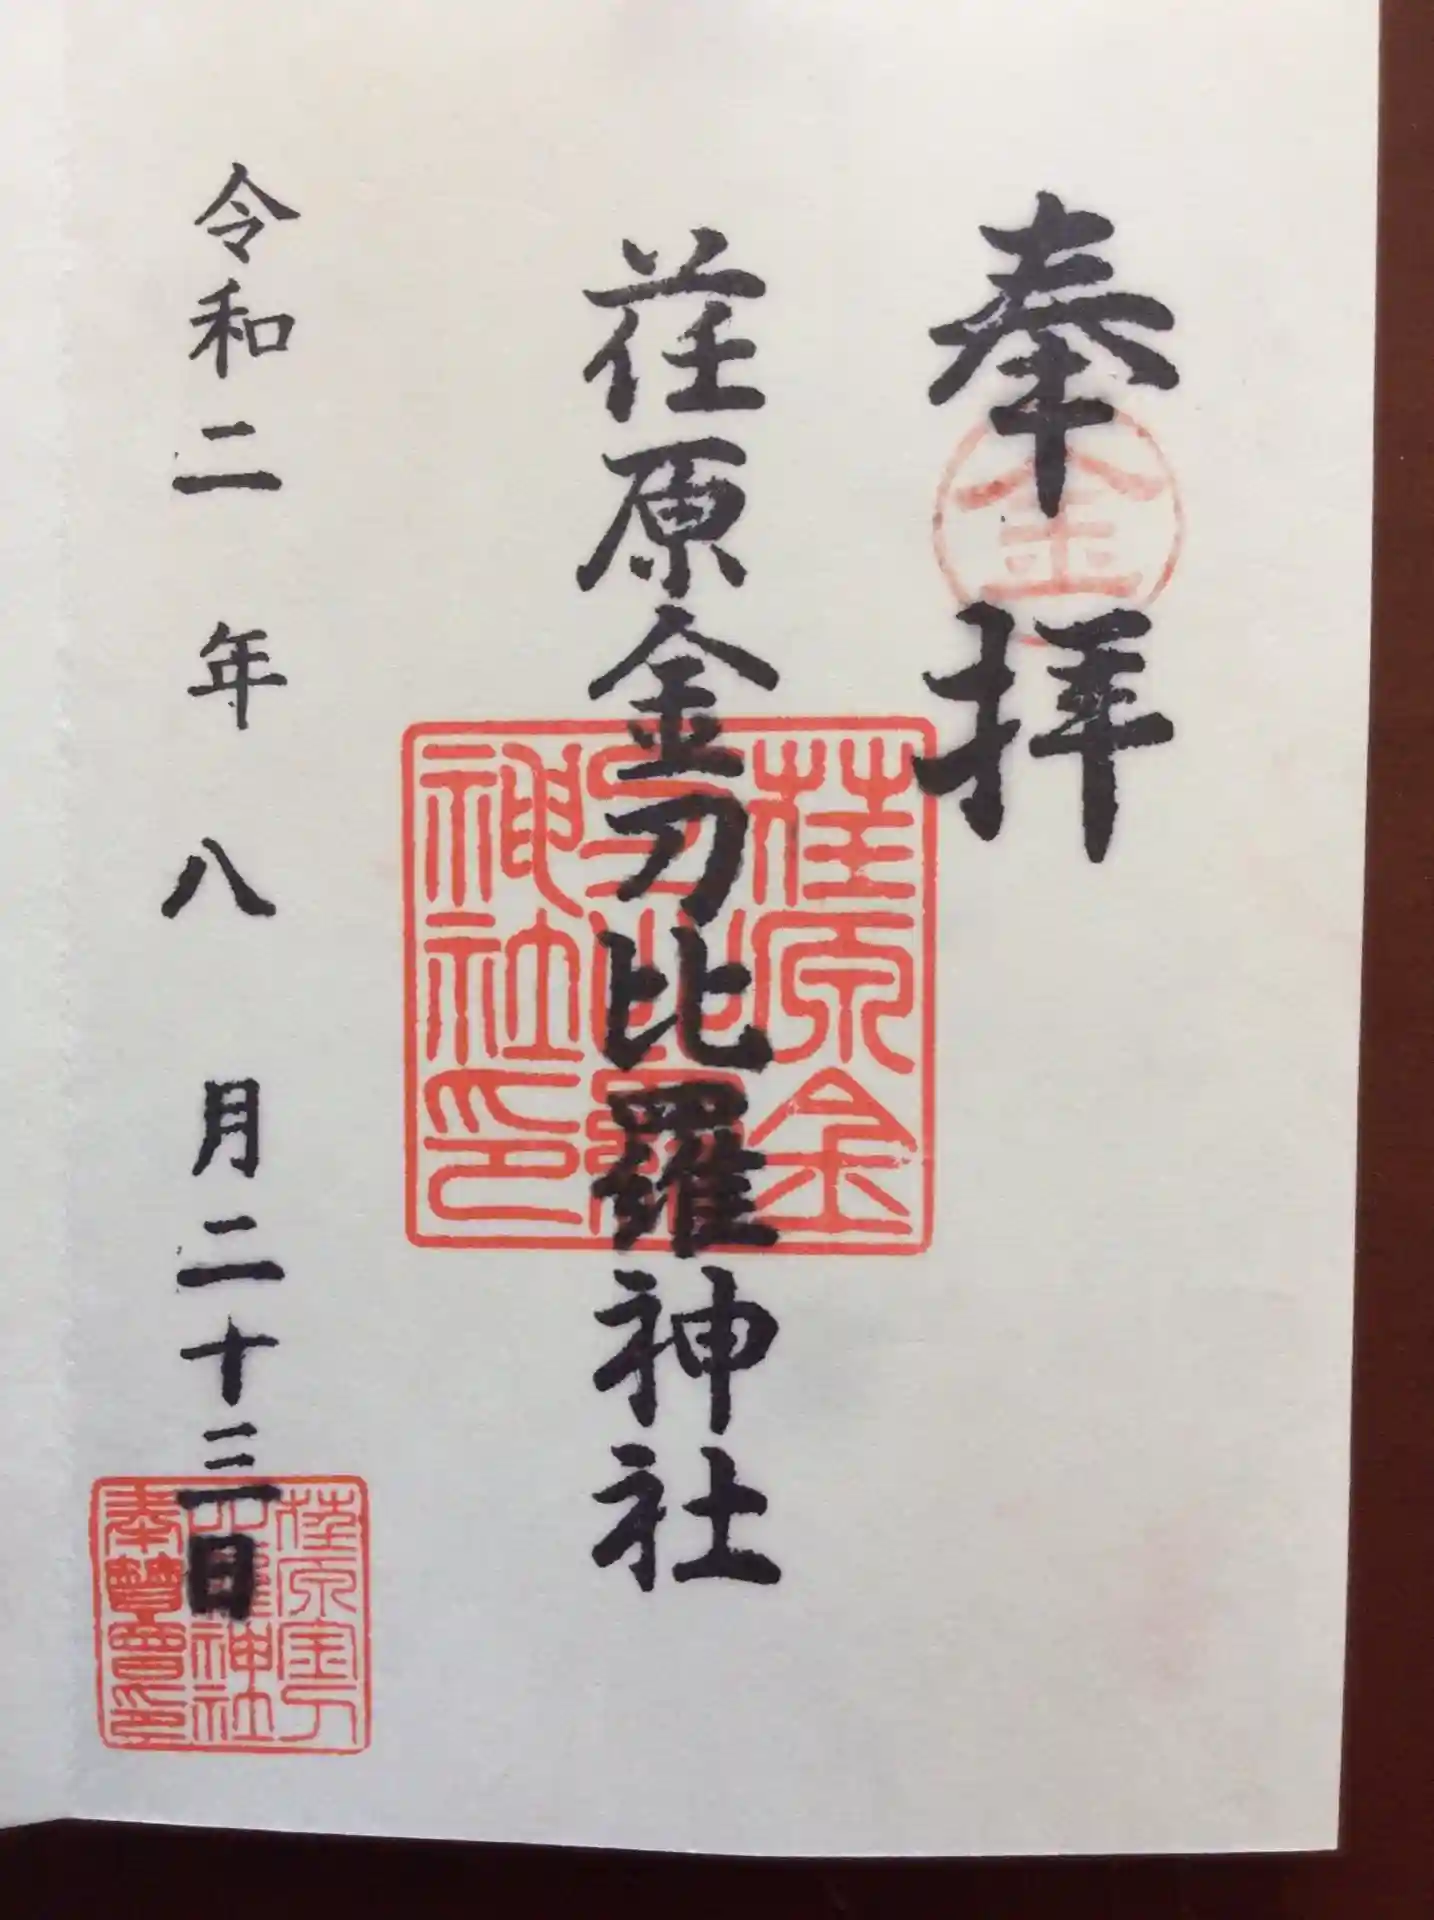 奉拝
金
荏原金刀比羅神社
荏原金
刀比羅
神社印
令和二年八月二十三日
荏原金刀
比羅神社
奉賛會印